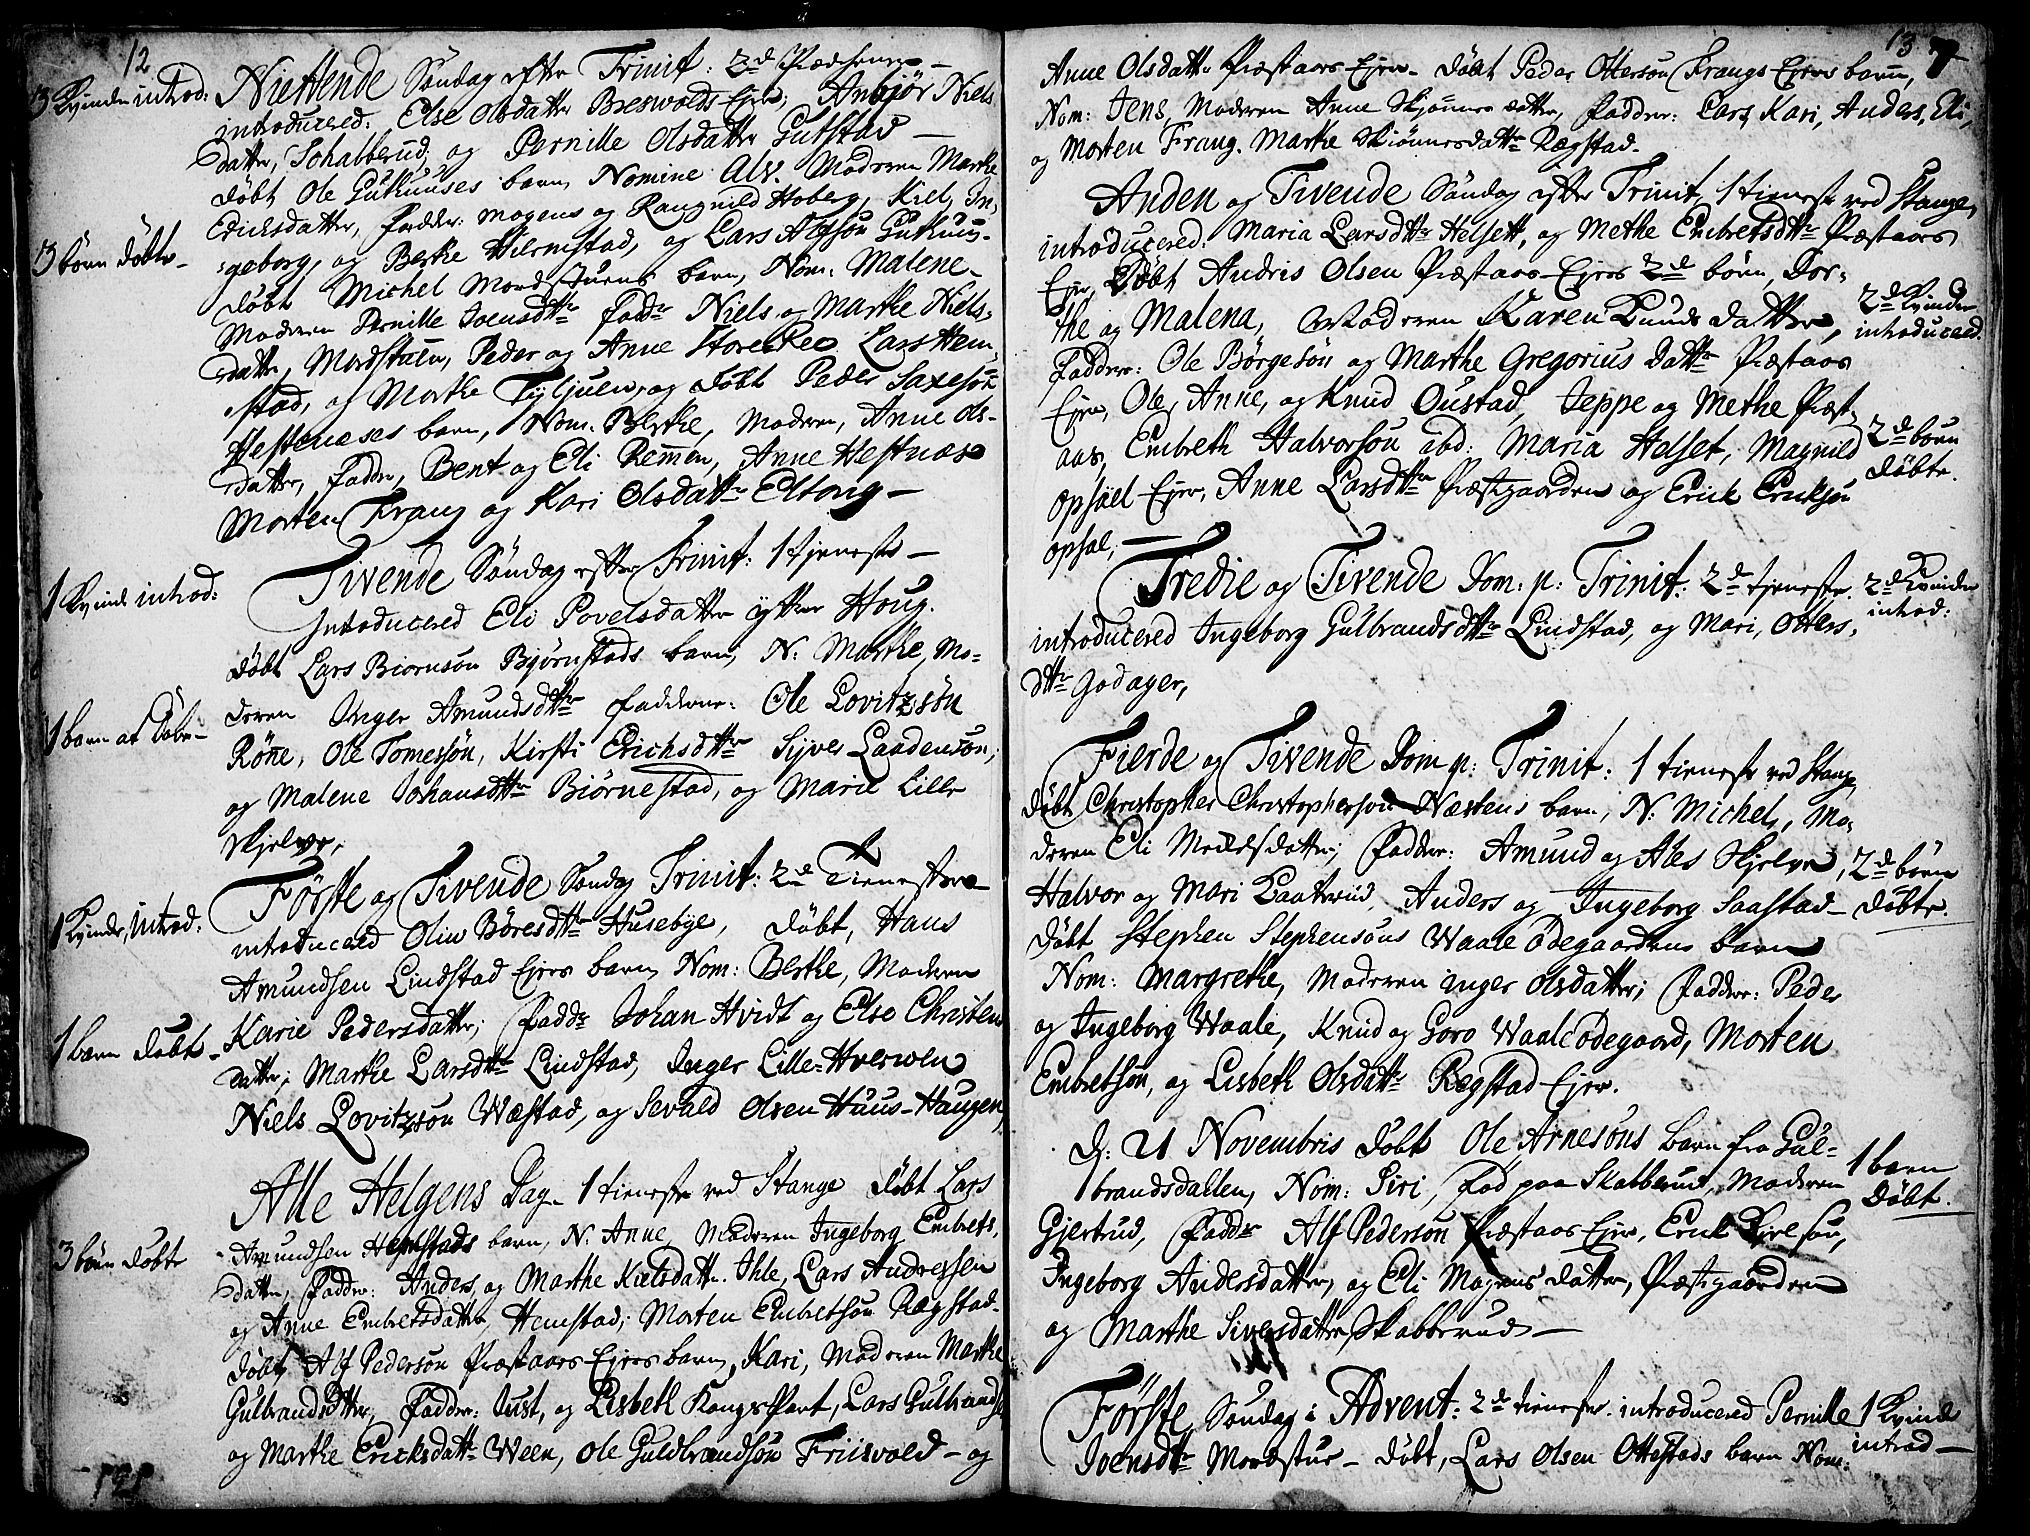 12
3 Kvinder introd:
Nittende Søndag efter Trinit: 2de Prædikener
introducered: Else Olsdatter Breswolds Ejer, Anbjør Niels
datter, Schabberud, og Pernille Olsdatter Gutstad
døbt Ole Gutkuuses barn, Nomine Alv. Moderen Marthe
Ericksdatter, fadder: Mogens og Rangnild Hoberg, Kield, In,
3 børn døbte
geborg, og Berthe Hilemstad, og Lars Alfsøn Gutkuus.
døbt Michel Mordstuens barn, Nom: Malene
Moderen Pernille Joensdtr faddr Niels og Marthe Niels,
datter, Mordstuen, Peder og Anne Storeskeo Lars Hem
stad, og Marthe Tyljuen, og døbt Peder Saxesøn
Hestneses barn, Nom. Berthe, Moderen, Anne Ols-
datter, fadder, Bent og Eli Remmen, Anne Hestnæs
Morten Frang og Kari Olsdattr Eltong
1 Kvinde introd:
Tivende Søndag efter Trinit: 1 tjeneste
Introducered Eli Povelsdatter ytter Houg.
døbt Lars Biornsøn Bjørnstads barn, N: Marthe, Mo-
1 barn at døbe
deren Inger Amundsdtr fadderne: Ole Lovitzsøn
Rønne, Ole Tomessøn, Kirsti Erichsdtr Sijver Laadensøn,
og Malene Johansdtr Biørnestad, og Marie Lille
Skjelver,
1 Kvinde, introd.
Første og Tivende Søndag Trinit: 2de Tienester
introducered Oliw Børesdtr Husebye, døbt, Hans
Amundsen Lindstad Ejers barn, Nom: Berthe, Moderen
1 barn døbt
Karie Pedersdatter; faddr Johan Hvidt og Else Christens
datter; Marthe Larsdtr Lindstad, Inger Lille-Hverwen
Niels Lovitzsøn Wæstad, og Sevald Olsen Huus-Haugen,
Alle Helgens Dag 1 tieneste ved Stange døbt Lars
3 børn døbte
Amundsen Hemstads barn, N. Anne, Moderen Ingeborg Embrets,
datter, fadder: Anders, og Marthe Kielsdattr. Ihle, Lars Andressen
og Anne Embretsdatter, Hemstad; Morten Embretsøn Ragstad.
døbt Alf Pedersøn Præstaars Ejers barn, Kari, Moderen Marthe
Gulbrandsdtter, fadder: Just, og Lisbeth KongsPart, Lars Gulbrands
og Marthe Ericksdattr Ween, Ole Guldbrandsøn Friisvold - og
13
7
Anne Olsdattr Præstaars Ejer. døbt Peder Ottersøn Frangs Ejers barn,
Nom: Jens, Moderen Anne Skjønners datter, fadder: Lars, Kari, Anders, Eli,
og Morten Frang. Marthe Skiønnersdattr Ragstad.
Anden og Tivende Søndag efter Trinit, 1 tieneste ved Stange,
introducered: Maria Larsdtr Helsett, og Methe Embretsdtr Præstaars
Ejer, Døbt Andris Olsen Præstaars Ejers 2de børn, Dor-
2de Kvinder
introducered.
the og Malena, Moderen Karen Knuds datter,
fadder: Ole Børgesøn og Marthe Gregorius dattr Præstaars
Ejer, Ole, Anne, og Knud Oustad, Jeppe og Methe Præst
2de børn
døbte.
aas, Embreth Halvorsøn ibd: Maria Helset, Magnild
Opsael Ejer, Anne Larsdtr Præstgaarden og Erick Ericksøn
Opsal,
Tredie og Tivende Dom: p: Trinit: 2de tjeneste.
2de Kvinder
introd:
introducered Ingeborg Gulbrandsdtr Lindstad, og Mari, Otters,
dtr Godager,
Fierde og Tivende Dom p: Trinit: 1 tieneste ved Stange,
døbt Christopher Christophersøn Næstens barn, N. Michel, Mo,
deren Eli Meelsdatter; fadder: Amund og Ales Skjelve,
2de børn
døbte.
Halvor og Mari Laaterud, Anders og Ingeborg Saastad
døbt Stephen Stephensøns Waale Ødegaardens barn
Nom: Margrethe, Moderen Inger Olsdatter; fadder: Peder
og Ingeborg Waale, Knud og Goro Waaleødegaard, Morten
Embretsøn, og Lisbeth Olsdattr Ragstad Ejer.
D: 21 Novembris døbt Ole Arnesøns barn fra Gul-
1 barn
døbt.
brandsdallen, Nom: Siri, fød paa Skabberud, Moderen
Gjertrud, faddr Alf Pedersøn Præstaars Ejer, Erick Kjelsøn,
Ingeborg Andersdatter, og Eli Mogensdatter, Præstgaarden
og Marthe Siversdatter Skabberud
Første Søndag i Advent: 2de tienester. introducered Pernille
1 Kvinde
introd
Joensdtr Mordstue - døbt, Lars Olsen Ottestads barn Nom: